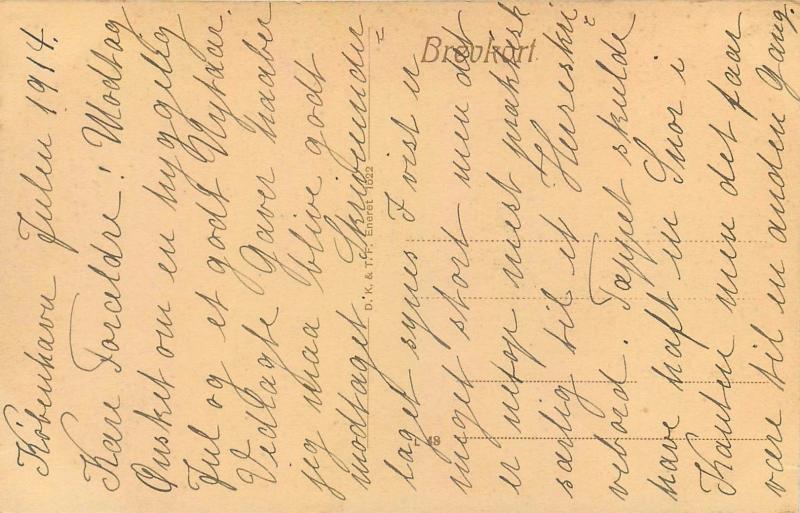 København Julen 1914.
Kære Forældre! Modtag
Ønsket om en hyggelig
Jul og et godt Nytaar.
Vedlagte Gaver haaber
jeg maa blive godt
modtaget. Skriveunder
laget synes I vist er
meget stort men det
er netop mest praktisk
særlig til et Herreskri
vebord. Tæppet skulde
have haft en Snor i
Kanten men det faar
være til en anden Gang.
Brevkort
D. K. & T. F. Eneret 1022
48